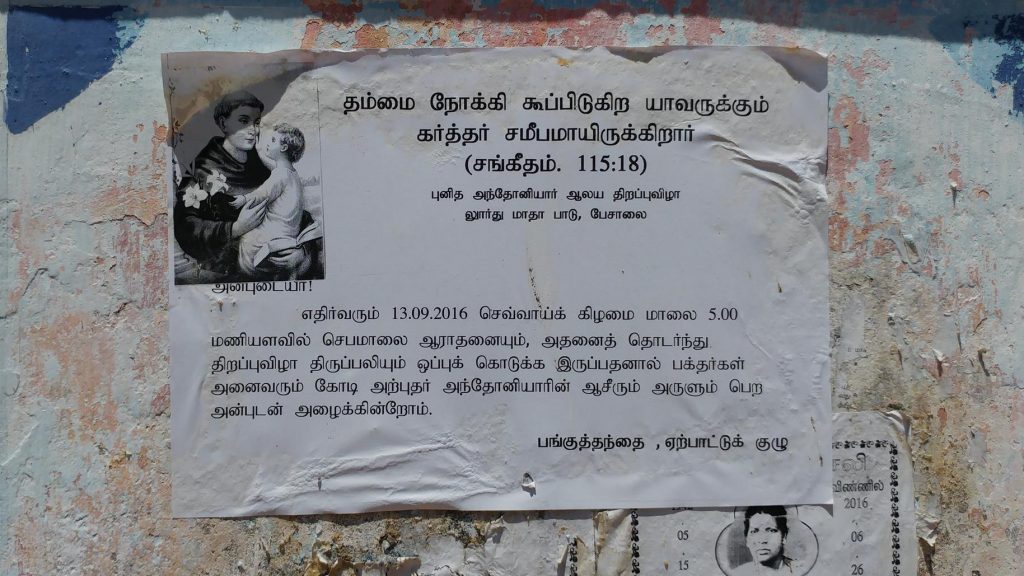 தம்மை நோக்கி கூப்பிடுகிற யாவருக்கும்
கர்த்தர் சமீபமாயிருக்கிறார்
(சங்கீதம். 115:18)
புனித அந்தோனியார் ஆலய திறப்புவிழா
லூர்து மாதா பாடு, பேசாலை
அன்புடையீர்!
எதிர்வரும் 13.09.2016 செவ்வாய்க் கிழமை மாலை 5.00
மணியளவில் செபமாலை ஆராதனையும், அதனைத் தொடர்ந்து
திறப்புவிழா திருப்பலியும் ஒப்புக் கொடுக்க இருப்பதனால் பக்தர்கள்
அனைவரும் கோடி அற்புதர் அந்தோனியாரின் ஆசீரும் அருளும் பெற
அன்புடன் அழைக்கின்றோம்.
பங்குத்தந்தை , ஏற்பாட்டுக் குழு
2016
05
06
15
26